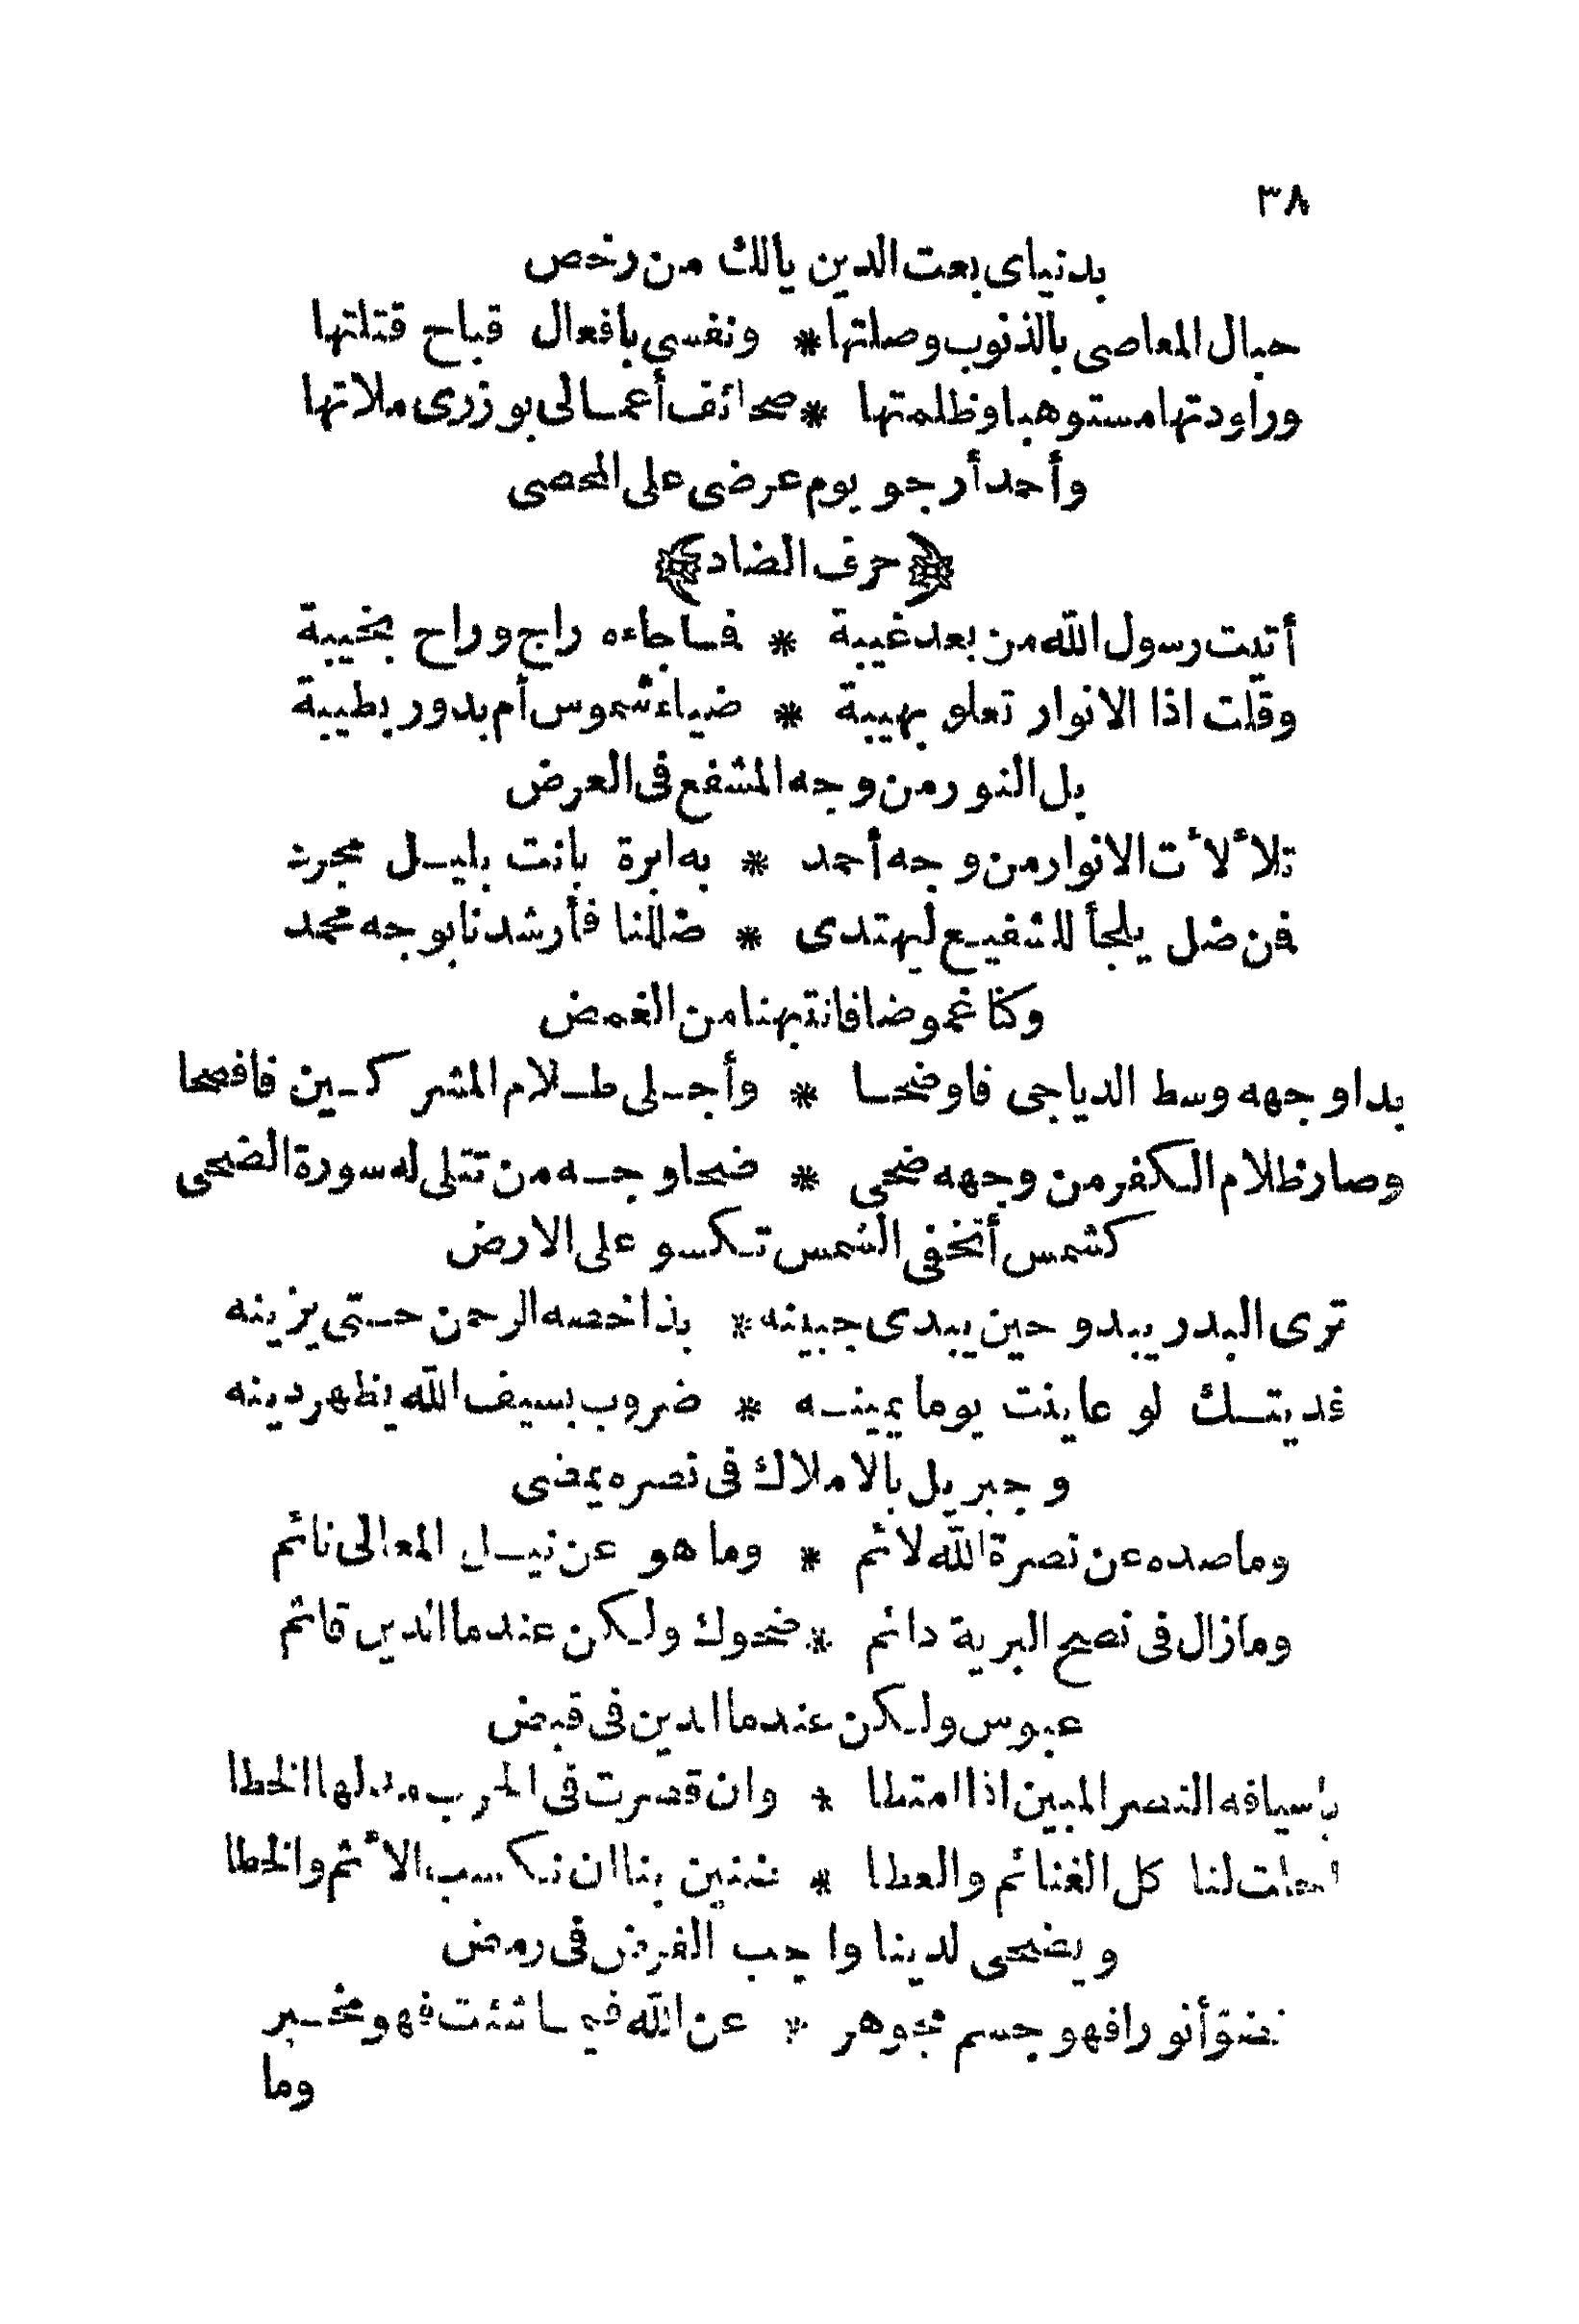 ٣٨
بدنياى بعت الدين يالك من رخص
حبال المعاصى بالذنوب وصلتها * ونفسى بافعال قباح قتلتها
وراودتها مستوهبا وظلمتها * صحائف أعمالى بوزرى ملاتها
وأحمد أرجو يوم عرضى على المحصى
﴿حرف الضاد﴾
أتيت رسول الله من بعد غيبة * فما جاءه راج وراح بخيبة
وقلت اذا الانوار تعلو بهيبة * ضياء شموس أم بدور بطيبة
بل النور من وجه المشفع فى العرض
تلألأت الانوار من وجه أحمد * به ابرة بانت بليل مجرد
فمن ضل يلجأ للشفيع ليهتدى * ضللنا فأرشدنا بوجه محمد
وكنا غموضا فانتبهنا من الغمض
بدا وجهه وسط الدياجى فاوضحا * وأجلى ظلام المشركين فافصحا
وصار ظلام الكفر من وجهه ضحى * ضحا وجه من تتلى له سورة الضحى
كشمس أتخفى الشمس تكسو على الارض
ترى البدر يبدو حين يبدى جبينه * بذا خصه الرحمن حتى يزينه
فديتك لو عاينت يوما يمينه * ضروب بسيف الله يظهر دينه
وجبريل بالاملاك فى نصره يمضى
وما صده عن نصرة الله لائم * وما هو عن نيل المعالى نائم
وما زال فى نصح البرية دائم * ضحوك ولكن عندما الدين قائم
عبوس ولكن عندما الدين فى قبض
باسيافه النصر المبين اذا امتطا * وان قصرت فى الحرب مد لها الخطا
لنا كل الغنائم والعطا * ضنين بنا ان نكسب الأثم والخطا
ويضحى لدينا واجب الفرض فى رمض
أنورا فهو جسم مجوهر * عن الله فيما شئت فهو مخبر
وما